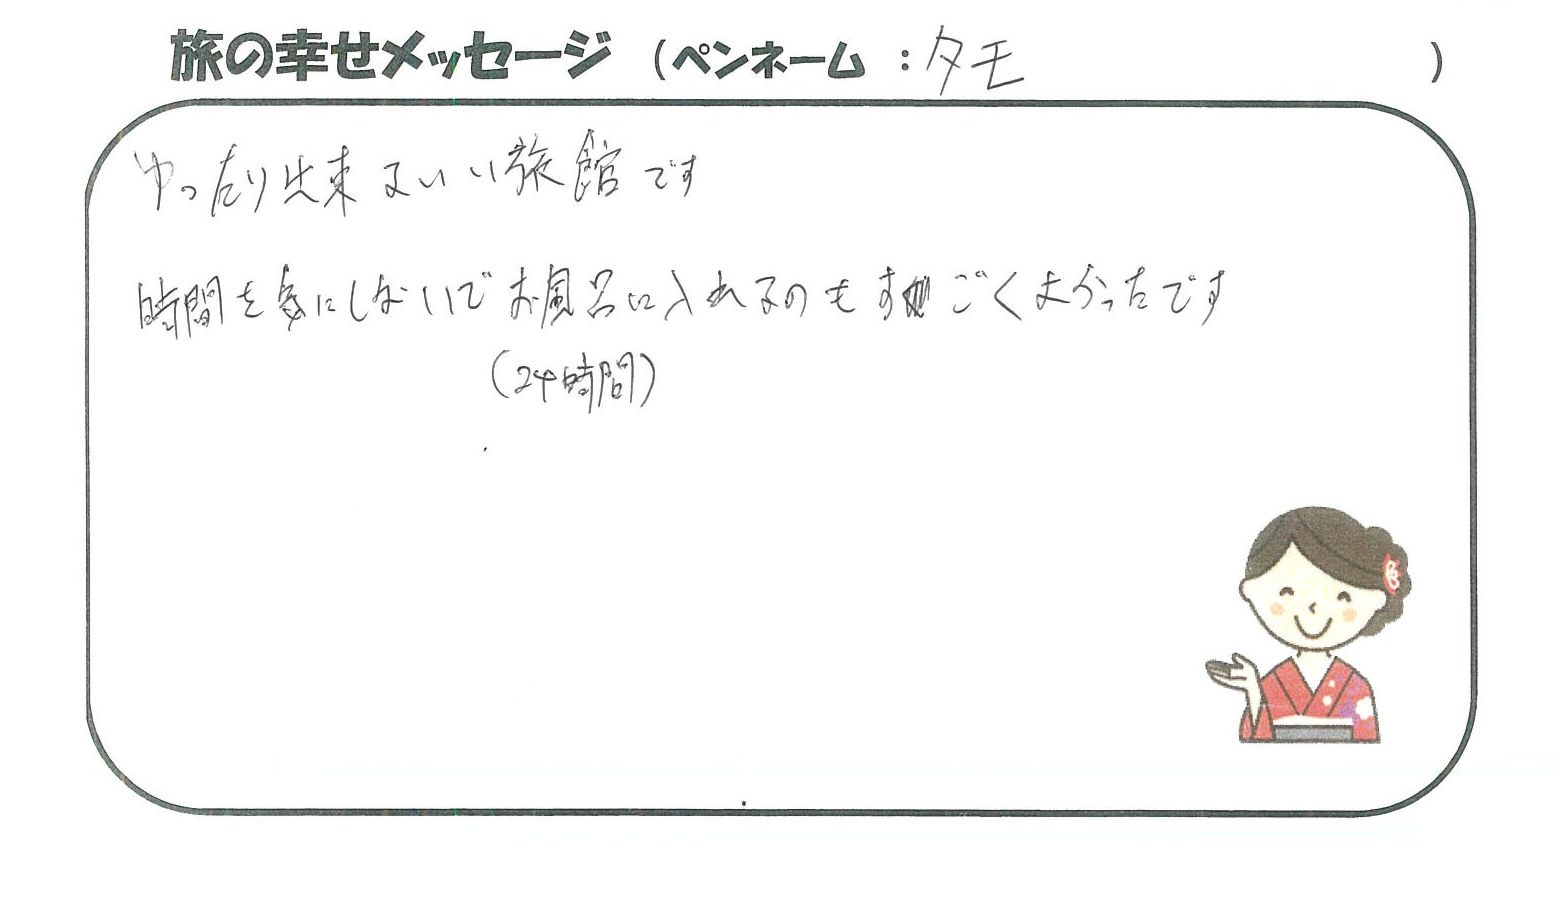 旅の幸せメッセージ （ペンネーム ：タモ ）
ゆったり出来るいい旅館です
時間を気にしないでお風呂に入れるのもすごくよかったです
（24時間）